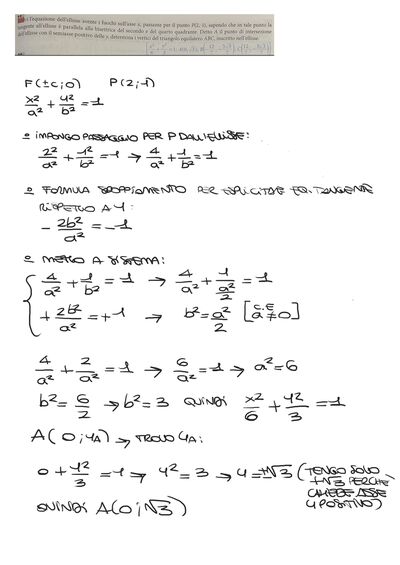 l'equazione dell'ellisse avente i fuochi sull'asse x, passante per il punto P(2; 1), sapendo che in tale punto la
tangente all'ellisse è parallela alla bisettrice del secondo e del quarto quadrante. Detto A il punto di intersezione
dell'ellisse con il semiasse positivo delle y, determina i vertici del triangolo equilatero ABC, inscritto nell'ellisse.
F(±c;0) P(2;1)
x²/a² + y²/b² = 1
IMPONGO PASSAGGIO PER P DALL'ELLISSE:
2²/a² + 1²/b² = 1 → 4/a² + 1/b² = 1
FORMULA SDOPPIAMENTO PER ESPLICITARE EQ. TANGENTE
RISPETTO A Y:
- 2b²/a² = -1
METTO A SISTEMA:
4/a² + 1/b² = 1 → 4/a² + 1/(a²/2) = 1
+ 2b²/a² = +1 → b² = a²/2 [C.E. a ≠ 0]
4/a² + 2/a² = 1 → 6/a² = 1 → a² = 6
b² = 6/2 → b² = 3 QUINDI x²/6 + y²/3 = 1
A(0;yA) → TROVO yA:
0 + y²/3 = 1 → y² = 3 → y = ±√3 (TENGO SOLO
+√3 PERCHÈ
CHIEDE ASSE
Y POSITIVO)
QUINDI A(0;√3)